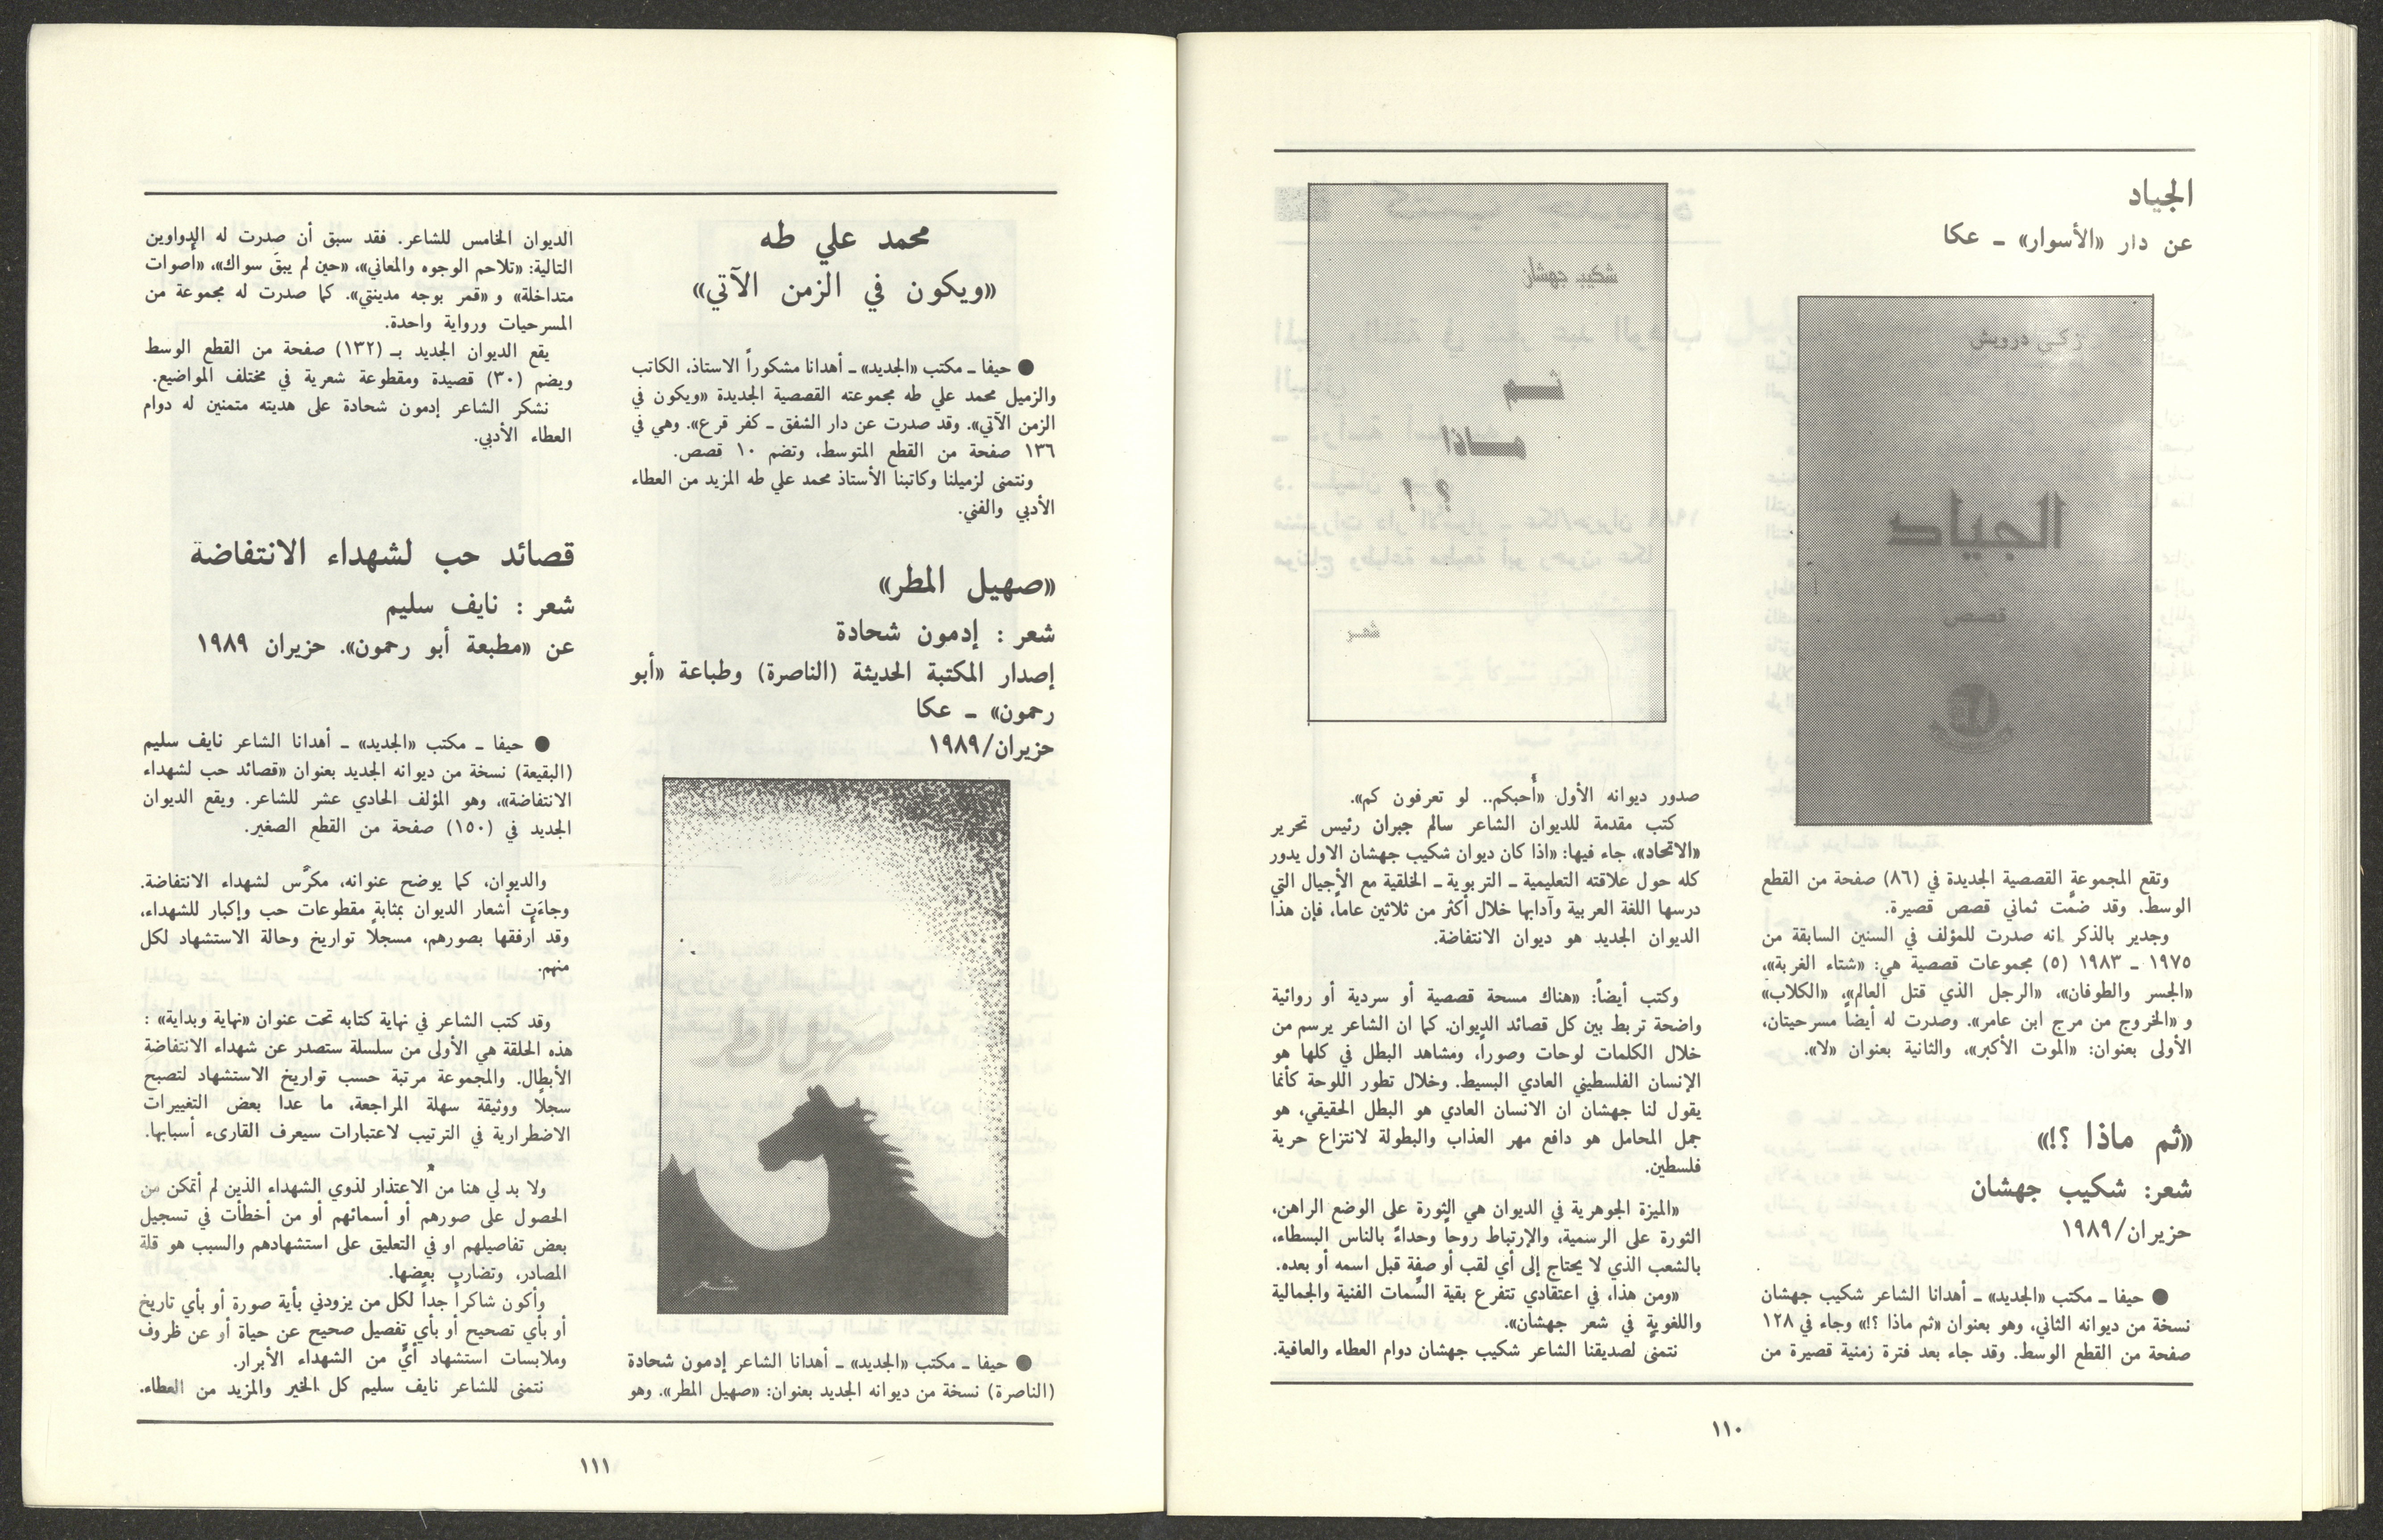 الجياد
عن دار «الأسوار» ـ عكا
زكي درويش
الجياد
قصص
وتقع المجموعة القصصية الجديدة في (٨٦) صفحة من القطع
الوسط. وقد ضمَّت ثماني قصص قصيرة.
وجدير بالذكر انه صدرت للمؤلف في السنين السابقة من
١٩٧٥ ـ ١٩٨٣ (٥) مجموعات قصصية هي: «شتاء الغربة»،
«الجسر والطوفان»، «الرجل الذي قتل العالم»، «الكلاب»
و «الخروج من مرج ابن عامر». وصدرت له أيضاً مسرحيتان،
الأولى بعنوان: «الموت الأكبر»، والثانية بعنوان «لا».
«ثم ماذا ؟!»
شعر: شكيب جهشان
حزيران/١٩٨٩
● حيفا ـ مكتب «الجديد» ـ أهدانا الشاعر شكيب جهشان
نسخة من ديوانه الثاني، وهو بعنوان «ثم ماذا ؟!» وجاء في ١٢٨
صفحة من القطع الوسط. وقد جاء بعد فترة زمنية قصيرة من
شكيب جهشان
ثم
ماذا
؟!
شعر
صدور ديوانه الأول «أُحبكم.. لو تعرفون كم».
كتب مقدمة للديوان الشاعر سالم جبران رئيس تحرير
«الاتحاد»، جاء فيها: «اذا كان ديوان شكيب جهشان الاول يدور
كله حول علاقته التعليمية ـ التربوية ـ الخلقية مع الأجيال التي
درسها اللغة العربية وآدابها خلال أكثر من ثلاثين عاماً، فإن هذا
الديوان الجديد هو ديوان الانتفاضة.
وكتب أيضاً: «هناك مسحة قصصية أو سردية أو روائية
واضحة تربط بين كل قصائد الديوان. كما ان الشاعر يرسم من
خلال الكلمات لوحات وصوراً، ومشاهد البطل في كلها هو
الإنسان الفلسطيني العادي البسيط. وخلال تطور اللوحة كأنما
يقول لنا جهشان ان الانسان العادي هو البطل الحقيقي، هو
جمل المحامل هو دافع مهر العذاب والبطولة لانتزاع حرية
فلسطين.
«الميزة الجوهرية في الديوان هي الثورة على الوضع الراهن،
الثورة على الرسمية، والإرتباط روحاً وحداءً بالناس البسطاء،
بالشعب الذي لا يحتاج إلى أي لقب أو صفة قبل اسمه أو بعده.
«ومن هذا، في اعتقادي تتفرع بقية السِّمات الفنية والجمالية
واللغوية في شعر جهشان».
نتمنَّى لصديقنا الشاعر شكيب جهشان دوام العطاء والعافية.
١١٠
محمد علي طه
«ويكون في الزمن الآتي»
● حيفا ـ مكتب «الجديد» ـ أهدانا مشكوراً الاستاذ، الكاتب
والزميل محمد علي طه مجموعته القصصية الجديدة «ويكون في
الزمن الآتي». وقد صدرت عن دار الشفق ـ كفر قرع». وهي في
١٣٦ صفحة من القطع المتوسط، وتضم ١٠ قصص.
ونتمنى لزميلنا وكاتبنا الأستاذ محمد علي طه المزيد من العطاء
الأدبي والفني.
«صهيل المطر»
شعر : إدمون شحادة
إصدار المكتبة الحديثة (الناصرة) وطباعة «أبو
رحمون» ـ عكا
حزيران/١٩٨٩
صهيل المطر
شعر
● حيفا ـ مكتب «الجديد» ـ أهدانا الشاعر إدمون شحادة
(الناصرة) نسخة من ديوانه الجديد بعنوان: «صهيل المطر». وهو
الديوان الخامس للشاعر. فقد سبق أن صدرت له الدواوين
التالية: «تلاحم الوجوه والمعاني»، «حين لم يبقَ سواك»، «أصوات
متداخلة» و «قمر بوجه مدينتي». كما صدرت له مجموعة من
المسرحيات ورواية واحدة.
يقع الديوان الجديد بـ (١٣٢) صفحة من القطع الوسط
ويضم (٣٠) قصيدة ومقطوعة شعرية في مختلف المواضيع.
نشكر الشاعر إدمون شحادة على هديته متمنين له دوام
العطاء الأدبي.
قصائد حب لشهداء الانتفاضة
شعر : نايف سليم
عن «مطبعة أبو رحمون». حزيران ١٩٨٩
● حيفا ـ مكتب «الجديد» ـ أهدانا الشاعر نايف سليم
(البقيعة) نسخة من ديوانه الجديد بعنوان «قصائد حب لشهداء
الانتفاضة»، وهو المؤلف الحادي عشر للشاعر. ويقع الديوان
الجديد في (١٥٠) صفحة من القطع الصغير.
والديوان، كما يوضح عنوانه، مكرَّس لشهداء الانتفاضة.
وجاءت أشعار الديوان بمثابة مقطوعات حب وإكبار للشهداء،
وقد أرفقها بصورهم، مسجلًا تواريخ وحالة الاستشهاد لكل
منهم.
وقد كتب الشاعر في نهاية كتابه تحت عنوان «نهاية وبداية» :
هذه الحلقة هي الأولى من سلسلة ستصدر عن شهداء الانتفاضة
الأبطال. والمجموعة مرتبة حسب تواريخ الاستشهاد لتصبح
سجلًا ووثيقة سهلة المراجعة، ما عدا بعض التغييرات
الاضطرارية في الترتيب لاعتبارات سيعرف القارىء أسبابها.
ولا بد لي هنا من الاعتذار لذوي الشهداء الذين لم أتمكن من
الحصول على صورهم أو أسمائهم أو من أخطأت في تسجيل
بعض تفاصيلهم او في التعليق على استشهادهم والسبب هو قلة
المصادر، وتضارب بعضها.
وأكون شاكراً جداً لكل من يزودني بأية صورة أو بأي تاريخ
أو بأي تصحيح أو بأي تفصيل صحيح عن حياة أو عن ظروف
وملابسات استشهاد أيٍّ من الشهداء الأبرار.
نتمنى للشاعر نايف سليم كل الخير والمزيد من العطاء.
١١١